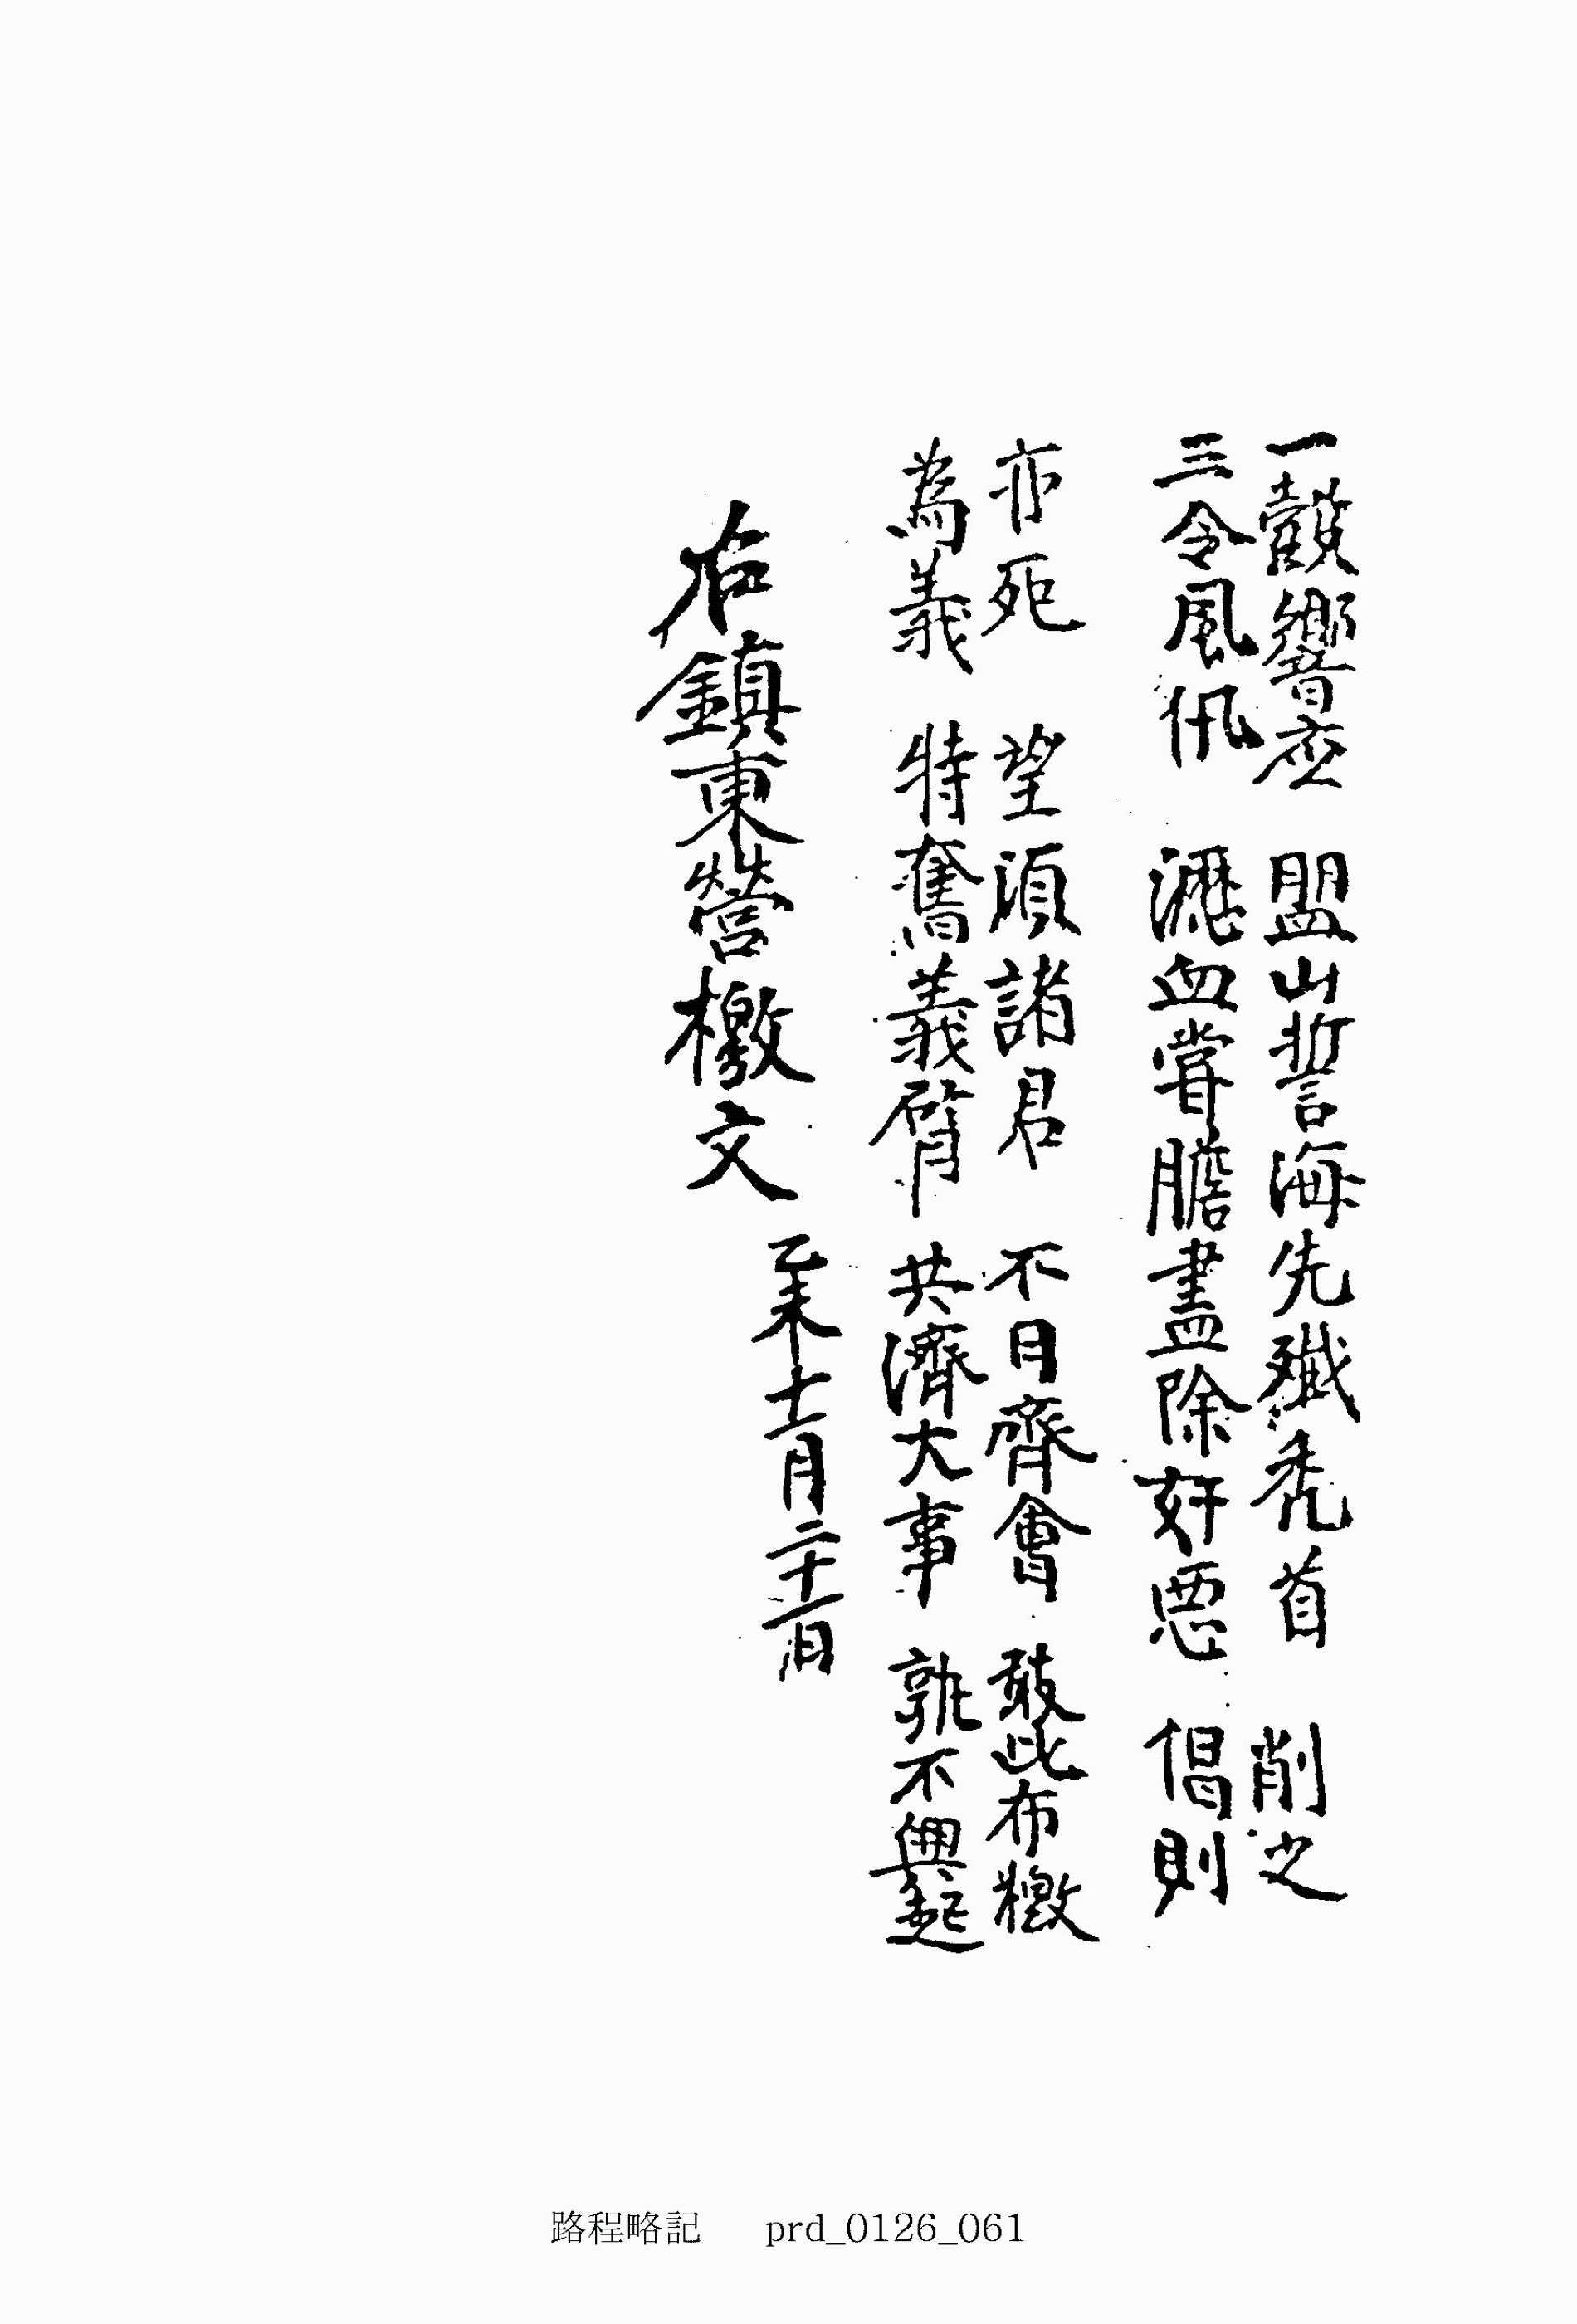 一鼓響应 盟山誓海先殲禿首 削之
三令風仉 瀝血嘗膽盡除奸惡 倡則
亦死 望須諸君 不日齊會 敢此布檄
為義 特奮義臂 共濟大事 孰不興起
右鎮東營檄文
乙未十一月二十一日
路程略記 prd_0126_061